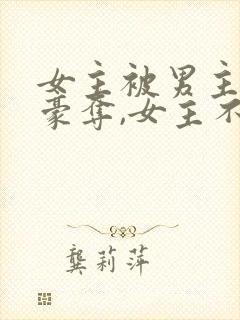 女主被男主
豪夺,女主不
龚莉萍